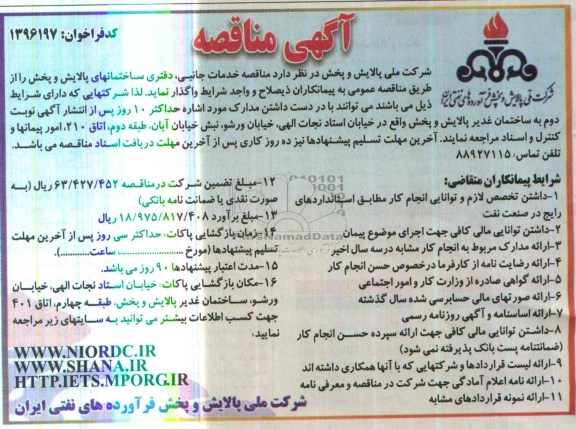 آگهی مناقصه
کدفراخوان: ۱۳۹۶۱۹۷
شرکت ملی پالایش و پخش فرآورده های نفتی ایران
شرکت ملی پالایش و پخش در نظر دارد مناقصه خدمات جانبی، دفتری ساختمانهای پالایش و پخش را از
طریق مناقصه عمومی به پیمانکاران ذیصلاح و واجد شرایط واگذار نماید. لذا شرکتهایی که دارای شرایط
ذیل می باشند می توانند با در دست داشتن مدارک مورد اشاره حداکثر ۱۰ روز پس از انتشار آگهی نوبت
دوم به ساختمان غدیر پالایش و پخش واقع در خیابان استاد نجات الهی، خیابان ورشو، نبش خیابان آبان، طبقه دوم، اتاق ۲۱۰، امور پیمانها و
کنترل و اسناد مراجعه نمایند. آخرین مهلت تسلیم پیشنهادها نیز ده روز کاری پس از آخرین مهلت دریافت اسناد مناقصه می باشد.
تلفن تماس: ۸۸۹۲۷۱۱۵
شرایط پیمانکاران متقاضی:
۱-داشتن تخصص لازم و توانایی انجام کار مطابق استانداردهای
رایج در صنعت نفت
۲-داشتن توانایی مالی کافی جهت اجرای موضوع پیمان
۳-ارائه مدارک مربوط به انجام کار مشابه درسه سال اخیر
۴-ارائه رضایت نامه از کارفرما درخصوص حسن انجام کار
۵-ارائه گواهی صادره از وزارت کار و امور اجتماعی
۶-ارائه صورتهای مالی حسابرسی شده سال گذشته
۷-ارائه اساسنامه و آگهی روزنامه رسمی
۸-داشتن توانایی مالی کافی جهت ارائه سپرده حسن انجام کار
(ضمانتنامه پست بانک پذیرفته نمی شود)
۹-ارائه لیست قراردادها و شرکتهایی که با آنها همکاری داشته اند
۱۰-ارائه نامه اعلام آمادگی جهت شرکت در مناقصه و معرفی نامه
۱۱-ارائه نمونه قراردادهای مشابه
۱۲-مبلغ تضمین شرکت درمناقصه ۶۳/۴۲۷/۴۵۲ ریال (به
صورت نقدی یا ضمانت نامه بانکی)
۱۳-مبلغ برآورد ۱۸/۹۷۵/۸۱۷/۴۰۸ ریال
۱۴-زمان بازگشایی پاکات: حداکثر سی روز پس از آخرین مهلت
تسلیم پیشنهادها (مورخ ............... ساعت..........)
۱۵-مدت اعتبار پیشنهادها ۹۰ روز می باشد.
۱۶-مکان بازگشایی پاکات: خیابان استاد نجات الهی، خیابان
ورشو، ساختمان غدیر پالایش و پخش، طبقه چهارم، اتاق ۴۰۱
جهت کسب اطلاعات بیشتر می توانید به سایتهای زیر مراجعه
نمایید.
WWW.NIORDC.IR
WWW.SHANA.IR
HTTP.IETS.MPORG.IR
شرکت ملی پالایش و پخش فرآورده های نفتی ایران